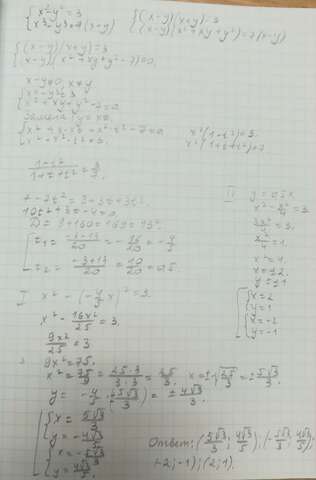 {x²-y²=3
{x³-y³=7(x-y)
{(x-y)(x+y)=3
{(x-y)(x²+xy+y²)=7(x-y)
{(x-y)(x+y)=3
{(x-y)(x²+xy+y²-7)=0,
x-y≠0, x≠y
{x²-y²=3
{x²+xy+y²-7=0
Замена y=xt.
x²(1-t²)=3.
x²(1+t+t²)=7
(1-t²)/(1+t+t²)=3/7.
7-7t²=3+3t+3t².
10t²+3t-4=0.
D=9+160=169=13².
[t₁=(-3-13)/20=-16/20=-4/5
[t₂=(-3+13)/20=10/20=0,5.
I x²-(-4/5x)²=3.
x²-16x²/25=3.
9x²/25=3
9x²=75.
x²=75/9=(25·3)/(3·3)=25/3. x=±√(25/3)=±5√3/3.
y=-4/5·(±5√3/3)=±4√3/3.
[{x=5√3/3
{y=-4√3/3
[{x=-5√3/3
{y=4√3/3.
II y=0,5x.
x²-x²/4=3.
3x²/4=3.
x²/4=1.
x²=4
x=±2.
y=±1
[{x=2
{y=1
[{x=-2
{y=-1.
Ответ: (5√3/3; -4√3/3), (-5√3/3; 4√3/3);
(-2;-1); (2;1).